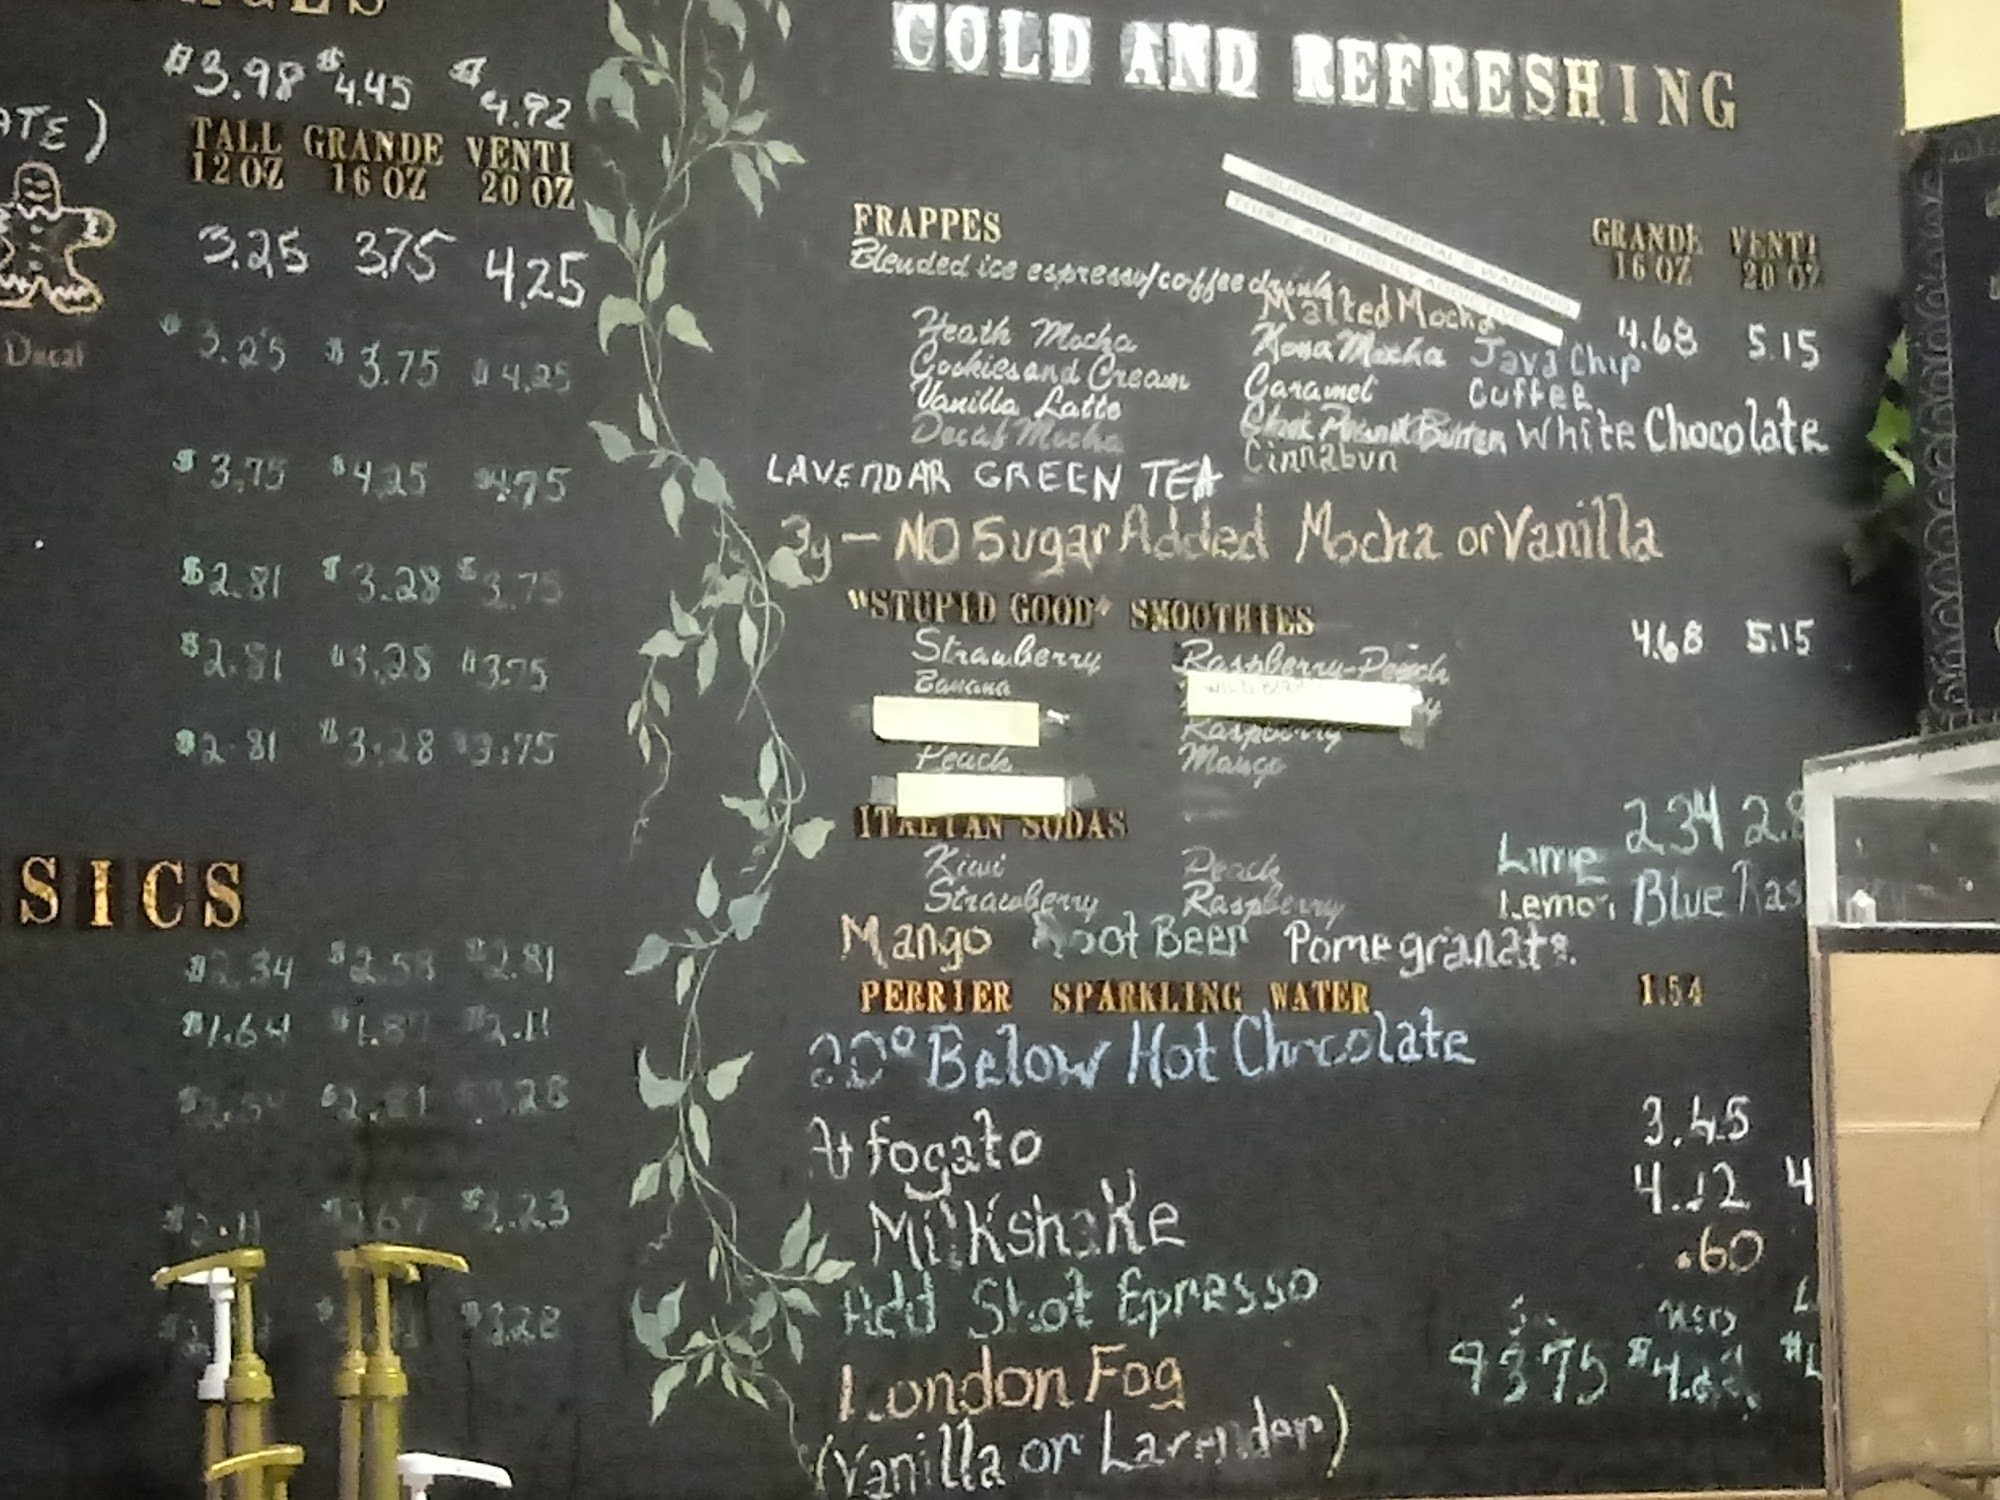 $3.98 $4.45 $4.92
TALL GRANDE VENTI
12 OZ 16 OZ 20 OZ
3.25 3.75 4.25
Decaf
$3.25 $3.75 $4.25
$3.75 $4.25 $4.75
$2.81 $3.28 $3.75
$2.81 $3.28 $3.75
$2.81 $3.28 $3.75
SICS
$2.34 $2.58 $2.81
$1.64 $2.11
$2.81
$3.23
3.28
COLD AND REFRESHING
SURGEON GENERAL'S WARNING
THESE ARE HIGHLY ADDICTIVE
FRAPPES
GRANDE VENTI
16 OZ 20 OZ
Blended ice espresso/coffee drinks
Malted Mocha
4.68 5.15
Heath Mocha Kona Mocha Java Chip
Cookies and Cream Caramel Coffee
Vanilla Latte Choc Peanut Butter White Chocolate
Decaf Mocha Cinnabun
LAVENDAR GREEN TEA
3g — NO Sugar Added Mocha or Vanilla
"STUPID GOOD" SMOOTHIES
4.68 5.15
Strawberry Raspberry-Peach
Banana
Raspberry
Peach Mango
ITALIAN SODAS
2.34 2.8
Kiwi Peach Lime
Strawberry Raspberry Lemon Blue Ras
Mango Root Beer Pomegranate
PERRIER SPARKLING WATER 1.54
20° Below Hot Chocolate
Affogato 3.45
Milkshake 4.12 4
Add Shot Epresso .60
London Fog 3.75
(Vanilla or Lavender)